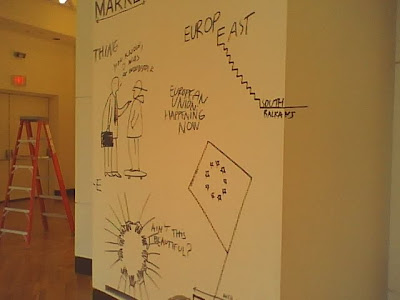 MARKE
EUROP EAST
THING
EUROPEAN
UNION
HAPPENING
NOW
SOUTH
BALKANS
AIN'T THIS
BEAUTIFUL?
EXIT